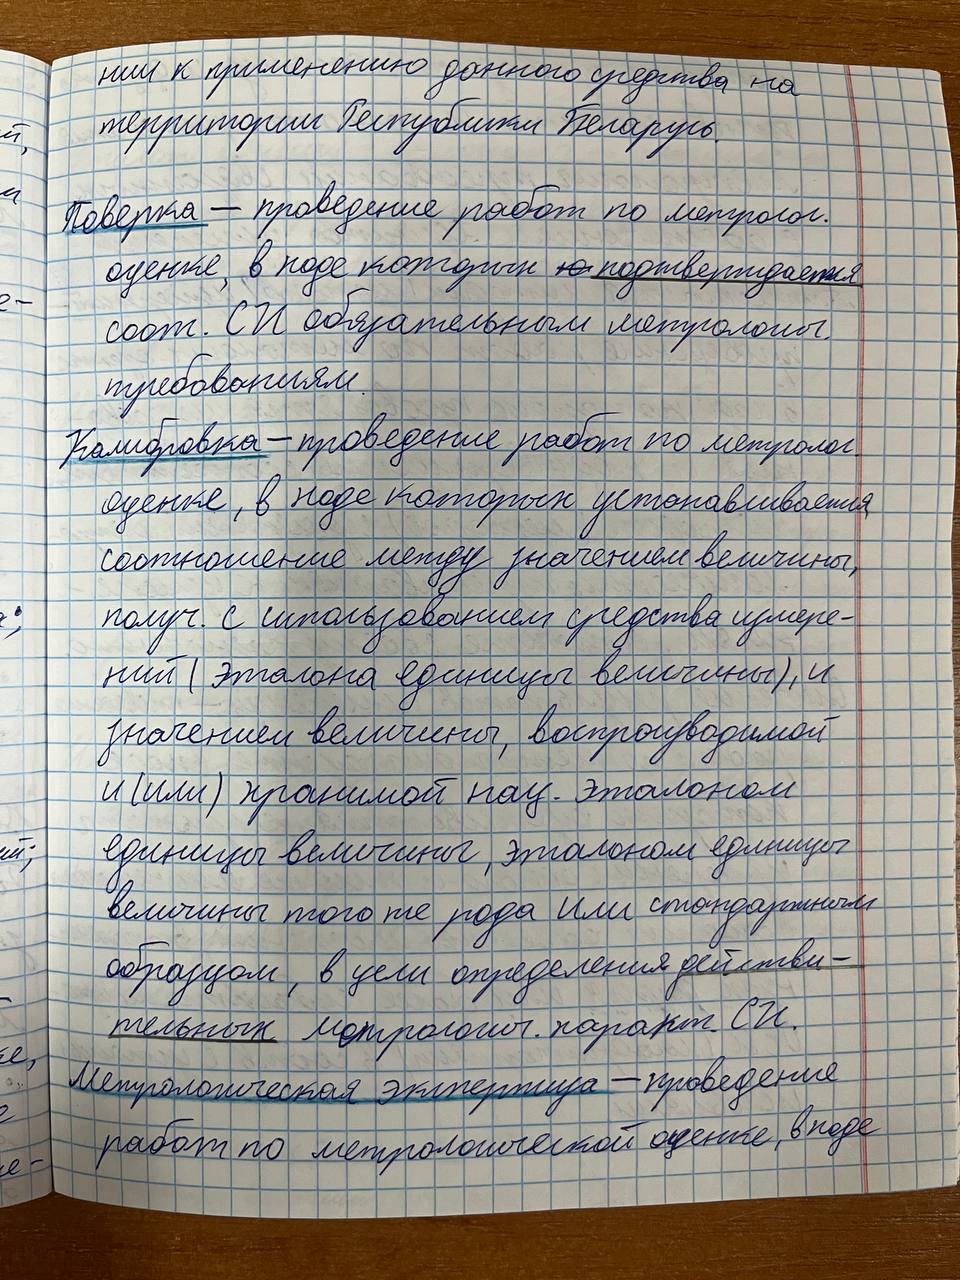 нии к применению данного средства на
территории Республики Беларусь.
Поверка – проведение работ по метролог.
оценке, в ходе которых подтверждается
соот. СИ обязательным метрологич.
требованиям
Калибровка – проведение работ по метролог.
оценке, в ходе которых устанавливается
соотношение между значением величины,
получ. с использованием средства измере-
ний (эталона единицы величины), и
значением величины, воспроизводимой
и (или) хранимой нац. эталоном
единицы величины, эталоном единицы
величины того же рода или стандартным
образцом, в цели определения действи-
тельных метрологич. характ. СИ.
Метрологическая экспертиза – проведение
работ по метрологической оценке, в ходе
й,
е-
ий;
ке,
е-